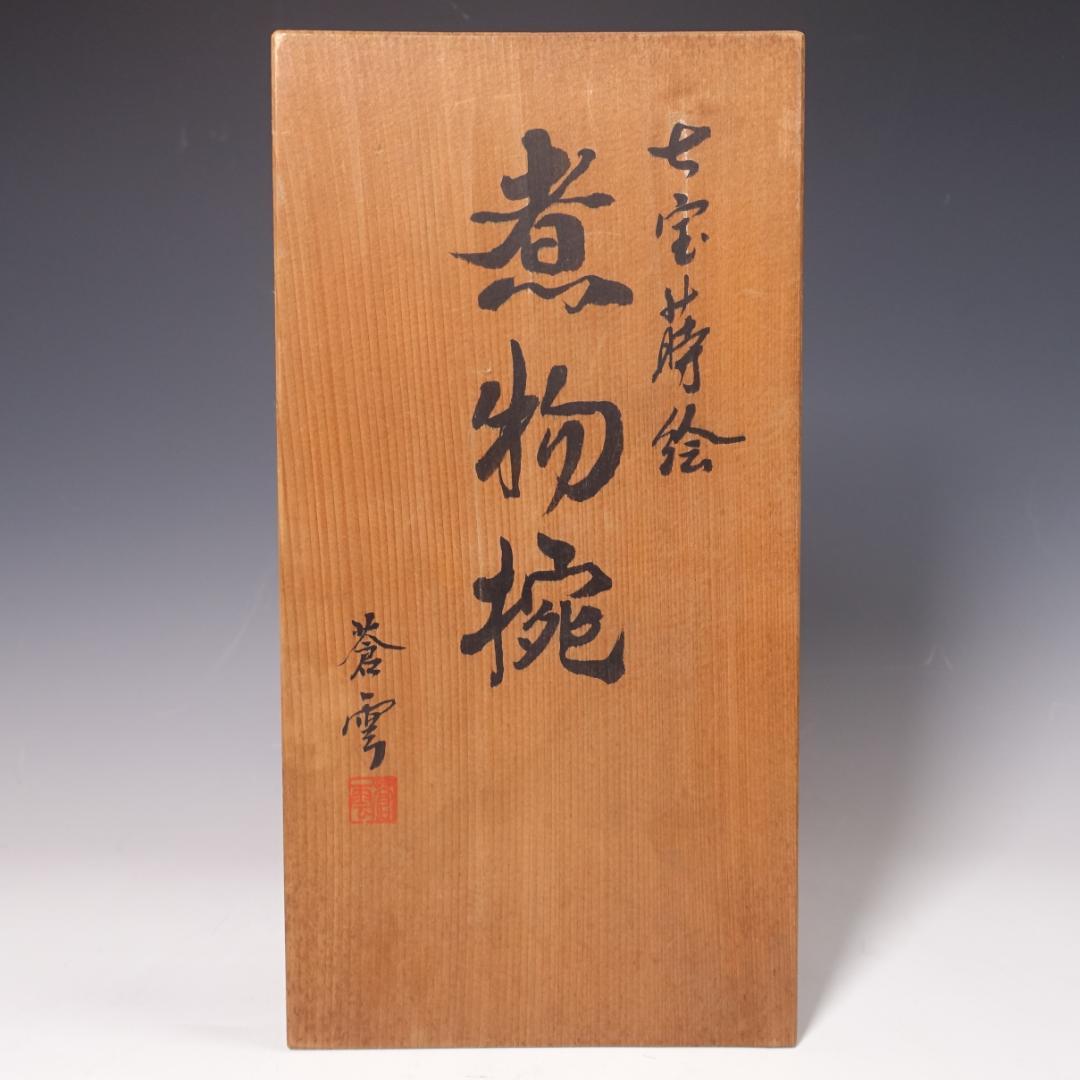 七宝蒔絵
煮物椀
蒼雲